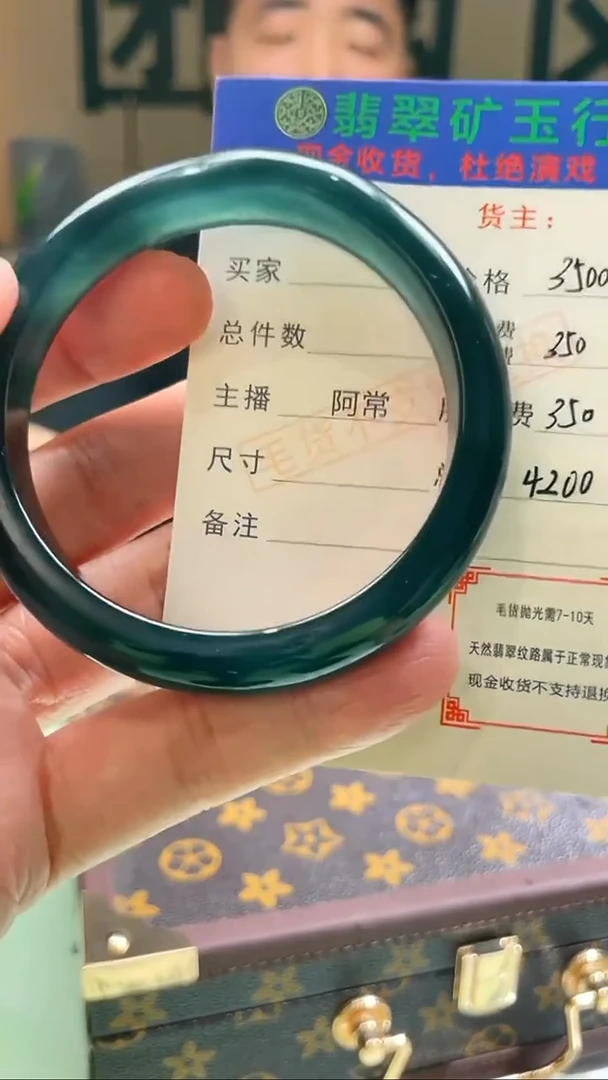 团
翡翠矿玉行
现金收货，杜绝演戏
货主：
买家
格 3500
总件数
费 350
主播 阿常
费 350
尺寸
4200
备注
毛货
毛货抛光需7-10天
天然翡翠纹路属于正常现
现金收货不支持退换